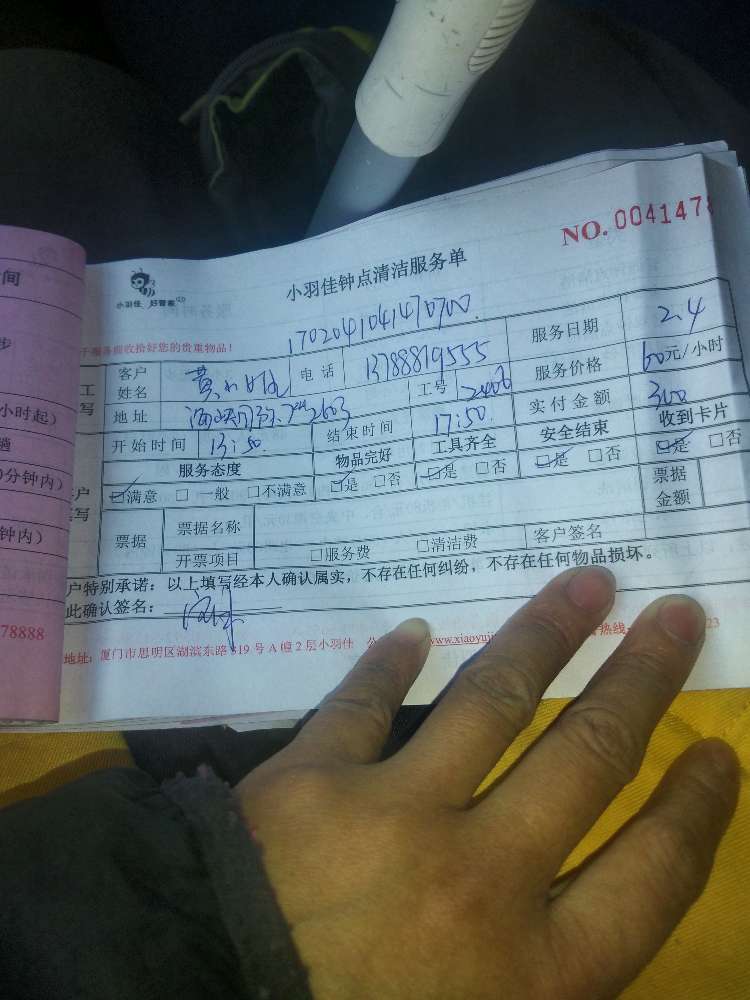 NO. 004147
小羽佳钟点清洁服务单
小羽佳 好管家
1702041041470700
服务前收拾好您的贵重物品!
客户姓名 黄小姐 电话 13788819555 服务日期 2.4
地址 2603 工号 2406 服务价格 60元/小时
开始时间 13:50 结束时间 17:50. 实付金额 300
服务态度 物品完好 工具齐全 安全结束 收到卡片
☑满意 □一般 □不满意 ☑是 □否 ☑是 □否 ☑是 □否 ☑是 □否
票据 票据名称 票据金额
开票项目 □服务费 □清洁费 客户签名
户特别承诺:以上填写经本人确认属实,不存在任何纠纷,不存在任何物品损坏。
此确认签名:
地址:厦门市思明区湖滨东路319号A幢2层小羽佳 www.xiaoyuj 热线 23
间
步
小时起)
趟
0分钟内)
钟内)
78888